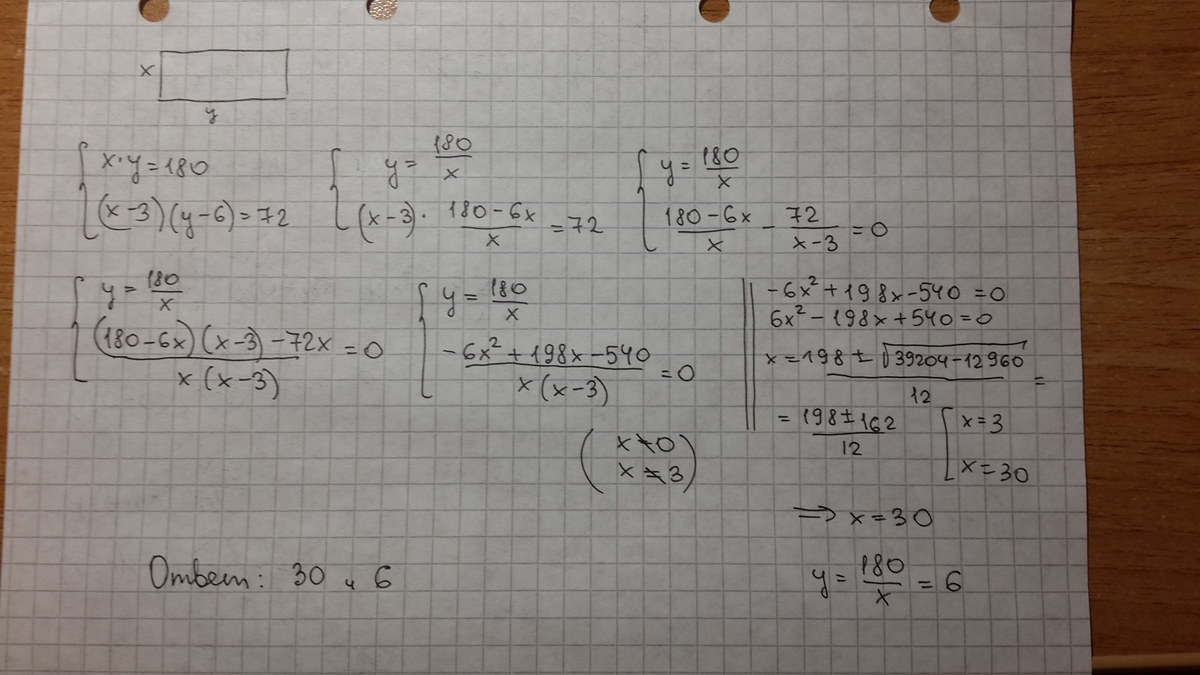 x
y
{ x·y=180
(x-3)(y-6)=72
{ y= 180/x
(x-3)· (180-6x)/x =72
{ y= 180/x
(180-6x)/x - 72/(x-3) =0
{ y= 180/x
((180-6x)(x-3)-72x)/(x(x-3)) =0
{ y= 180/x
(-6x²+198x-540)/(x(x-3)) =0
( x≠0
x≠3 )
-6x²+198x-540=0
6x²-198x+540=0
x= (198±√(39204-12960))/12 =
= (198±162)/12 [ x=3
x=30
⇒ x=30
y= 180/x =6
Ответ: 30 и 6